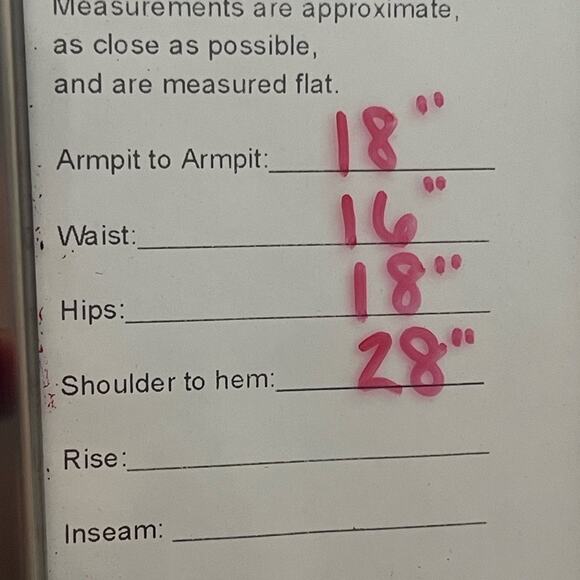 Measurements are approximate,
as close as possible,
and are measured flat.
Armpit to Armpit: 18"
Waist: 16"
Hips: 18"
Shoulder to hem: 28"
Rise:
Inseam: